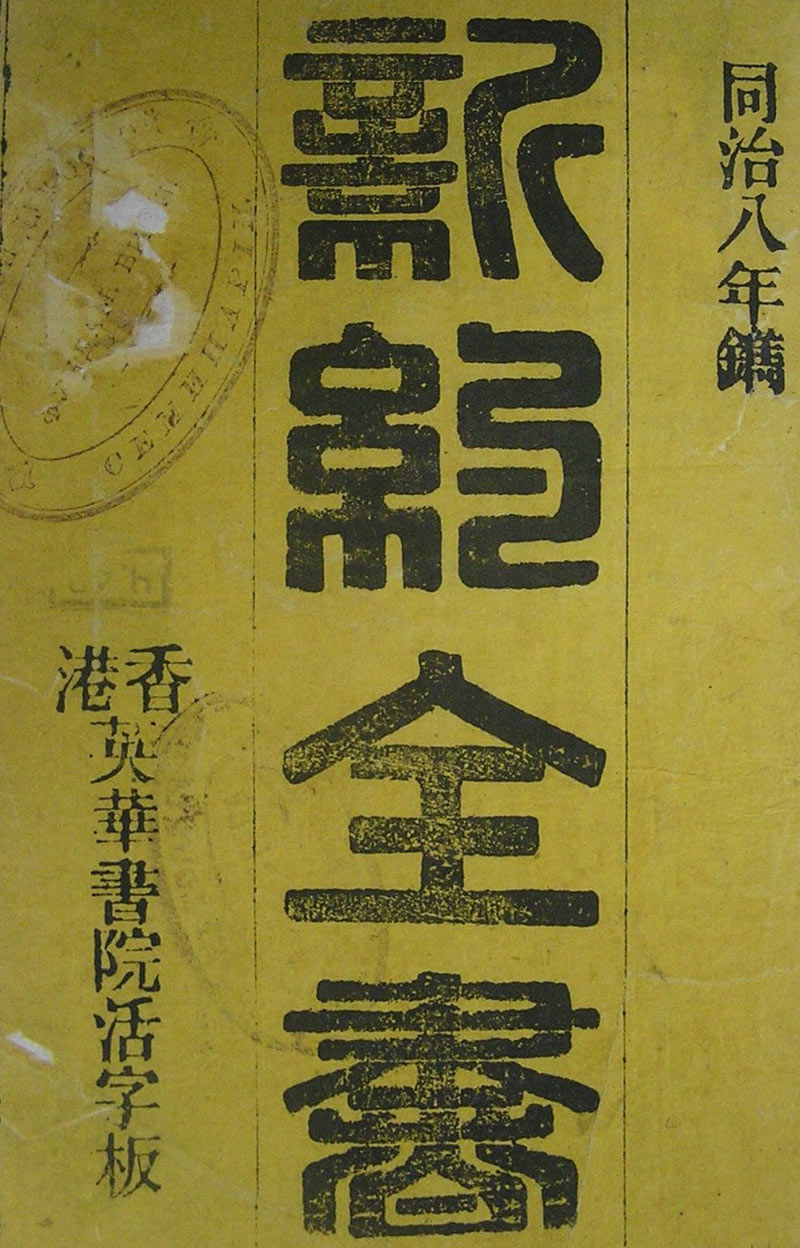 同治八年鐫
新約全書
香港
英華書院活字板
СЕМИНАРІИ